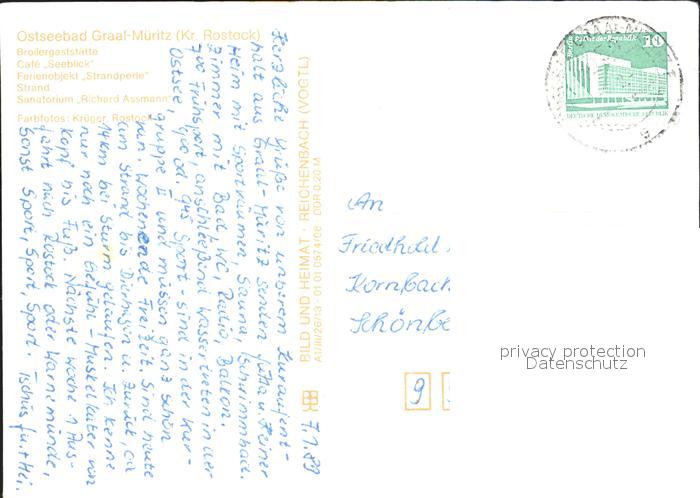 Ostseebad Graal-Müritz (Kr. Rostock)
Broilergaststätte
Café „Seeblick"
Ferienobjekt „Strandperle"
Strand
Sanatorium „Richard Assmann"
Farbfotos: Krüger, Rostock
Herzliche Grüße von unserem Kuraufent-
halt aus Graal-Müritz senden Jutta u. Heiner
Heim mit Sporträumen, Sauna, Schwimmbad.
Zimmer mit Bad, WC, Radio, Balkon.
7⁰⁰ Frühsport, anschließend Wassertreten in der
Ostsee, 9⁰⁰ od. 9⁴⁵ Sport - sind in der Kur-
gruppe II und müssen ganz schön
ran. Wochenende Freizeit. Sind heute
am Strand bis Dierhagen u. zurück, ca
14 km bei Sturm gelaufen. Ich kenne
nur noch ein Gefühl - Muskelkater von
Kopf bis Fuß. Nächste Woche 1 Aus-
fahrt nach Rostock oder Warnemünde,
Sonst Sport, Sport, Sport. Tschüs Ju. + Hei.
7.1.89
BILD UND HEIMAT · REICHENBACH (VOGTL)
A1/III/26/13 · 01 01 0574/06 DDR 0,20 M
Berlin, Palast der Republik
10
DEUTSCHE DEMOKRATISCHE REPUBLIK
GRAAL-M
An
Friedhold
Kornbach
Schönbe
9
privacy protection
Datenschutz